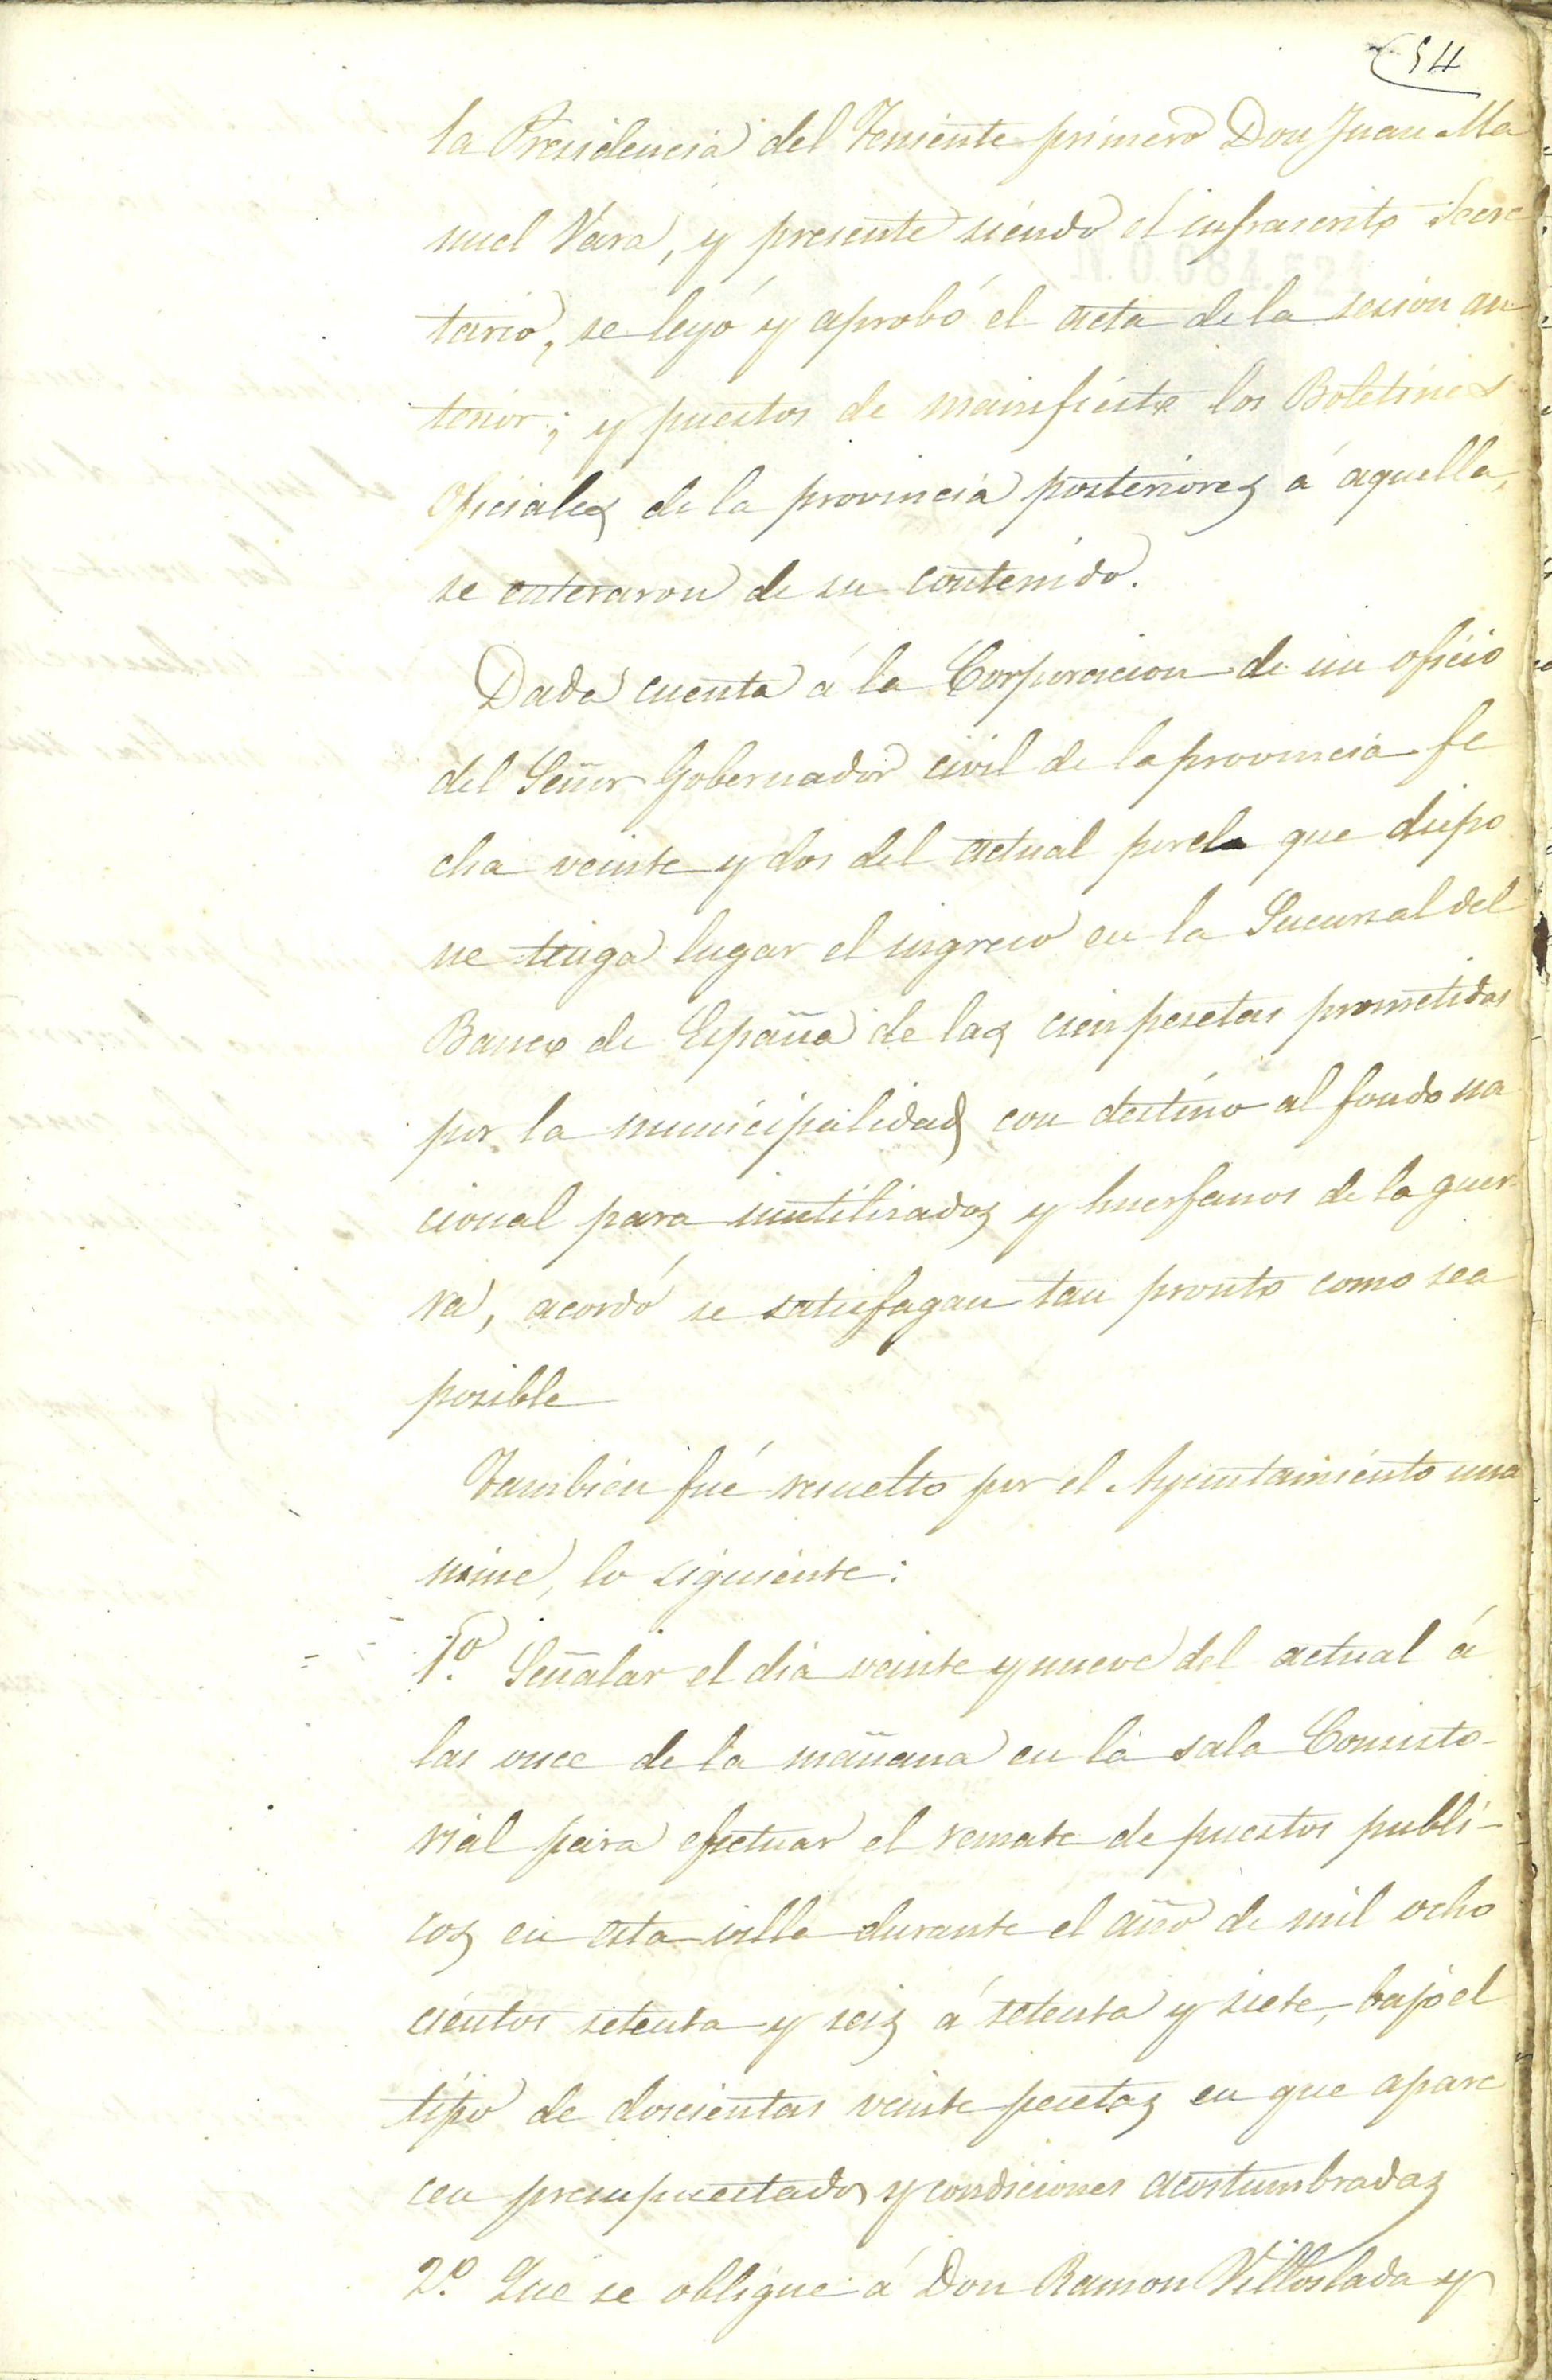 54
la Presidencia del Teniente primero Don Juan Ma
nuel Vara, y presente siendo el infrascrito Secre
tario, se leyó y aprobó el acta de la sesion an
terior; y puestos de manifiesto los Boletines
Oficiales de la provincia posteriores á aquella,
se enteraron de su contenido.
Dada cuenta á la Corporacion de un oficio
del Señor Gobernador civil de la provincia fe
cha veinte y dos del actual por el que dispo
ne tenga lugar el ingreso en la Sucursal del
Banco de España de las cien pesetas prometidas
por la municipalidad con destino al fondo na
cional para inutilizados y huerfanos de la guer
ra, acordó se satisfagan tan pronto como sea
posible
Tambien fué resuelto por el Ayuntamiento una
nime, lo siguiente:
1º. Señalar el dia veinte y nueve del actual á
las once de la mañana en la sala Consisto-
rial para efectuar el remate de puestos publi-
cos en esta villa durante el año de mil ocho
cientos setenta y seis á setenta y siete, bajo el
tipo de doscientas veinte pesetas en que apare
cen presupuestados y condiciones acostumbradas
2º. Que se obligue á Don Ramon Villoslada y